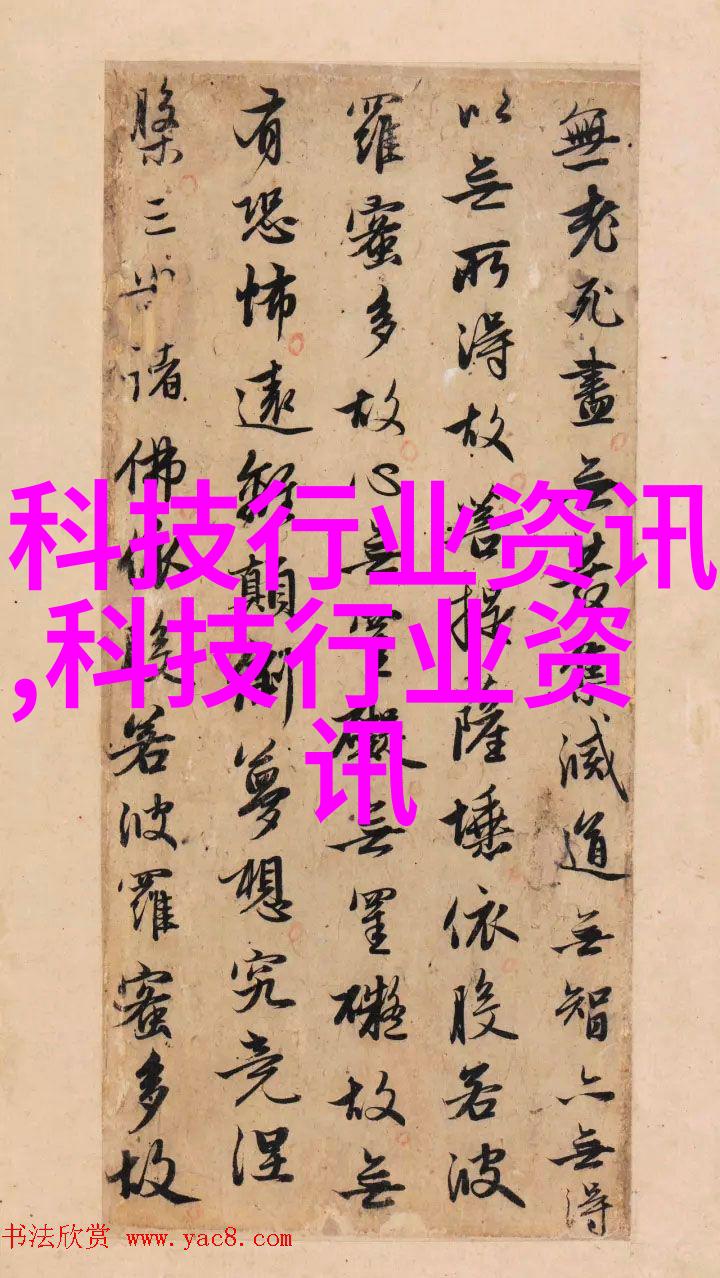 無老死盡无苦集滅道无智亦无得
以无所得故菩提薩埵依般若波
羅蜜多故心无罣礙无罣礙故无
有恐怖遠離顛倒夢想究竟涅
槃三世諸佛依般若波羅蜜多故
科技行业资讯
,科技行业资
讯
书法欣赏 www.yac8.com